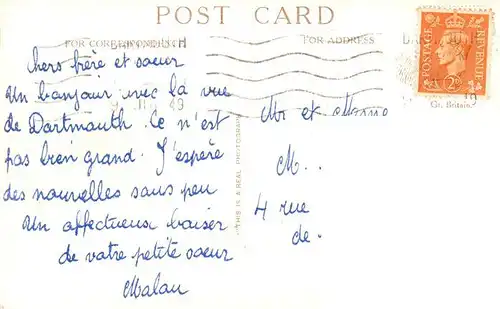 POST CARD
FOR CORRESPONDENCE
FOR ADDRESS
chers frère et soeur
Un bonjour avec la vue
de Dartmouth. Ce n'est
pas bien grand. J'espère
des nouvelles sans peu
Un affectueux baiser
de votre petite soeur
Malau
THIS IS A REAL PHOTOGRAPH
Mr et
M...
4 rue
de.
POSTAGE
REVENUE
2D
Gt. Britain.
49